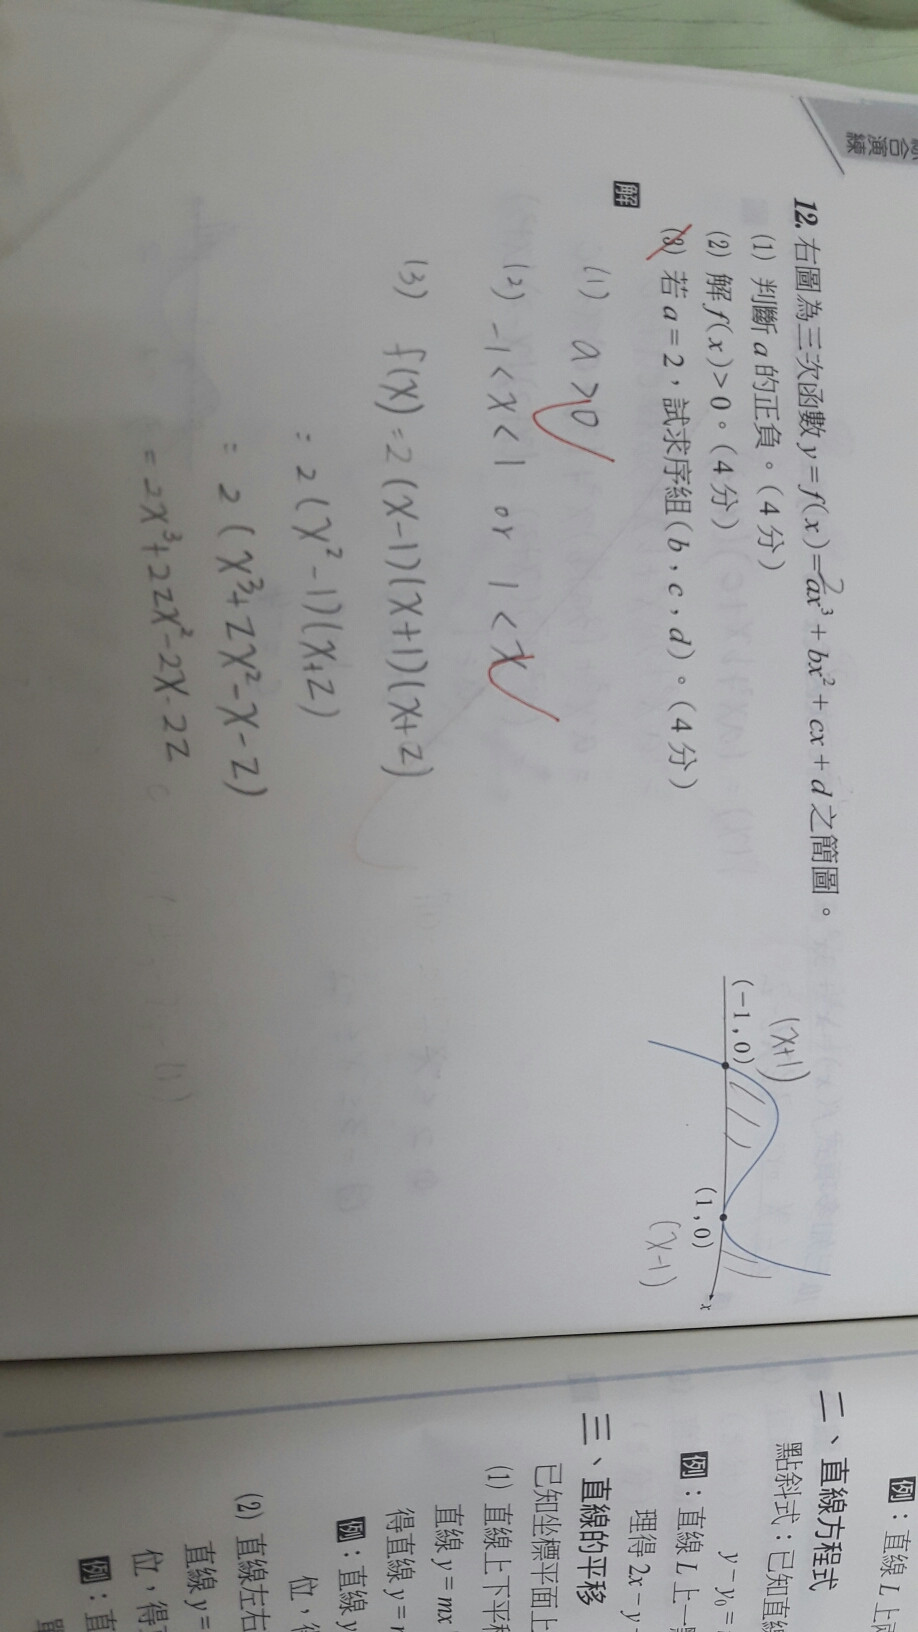 合演
練
12. 右圖為三次函數 y = f(x) = ax³ + bx² + cx + d 之簡圖。
2
(1) 判斷 a 的正負。(4 分)
(2) 解 f(x) > 0。(4 分)
(3) 若 a = 2,試求序組 (b, c, d)。(4 分)
(x+1)
(-1, 0)
(1, 0)
(x-1)
x
解
(1) a > 0
(2) -1 < x < 1 or 1 < x
(3) f(x) = 2(x-1)(x+1)(x+z)
= 2(x²-1)(x+z)
= 2(x³+zx²-x-z)
= 2x³+2zx²-2x-2z
例:直線 L 上
二、直線方程式
點斜式:已知直線
y - y₀ =
例:直線 L 上一
理得 2x - y
三、直線的平移
已知坐標平面上
(1) 直線上下平移
直線 y = mx
得直線 y =
例:直線 y
位,
(2) 直線左右
直線 y =
位,得
例:直